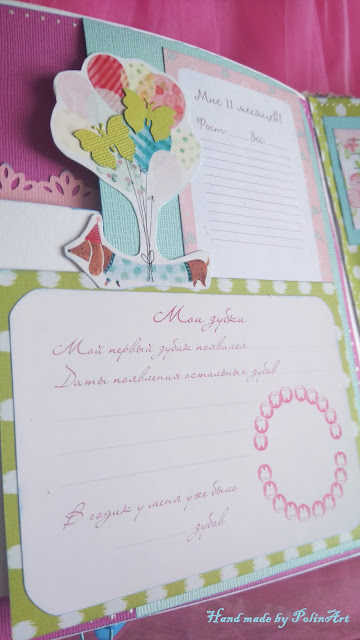 Мне 11 месяцев!
Рост Вес
Мои зубки
Мой первый зубик появился
Даты появления остальных зубов
В годик у меня уже было
зубов
Hand made by PolinaArt